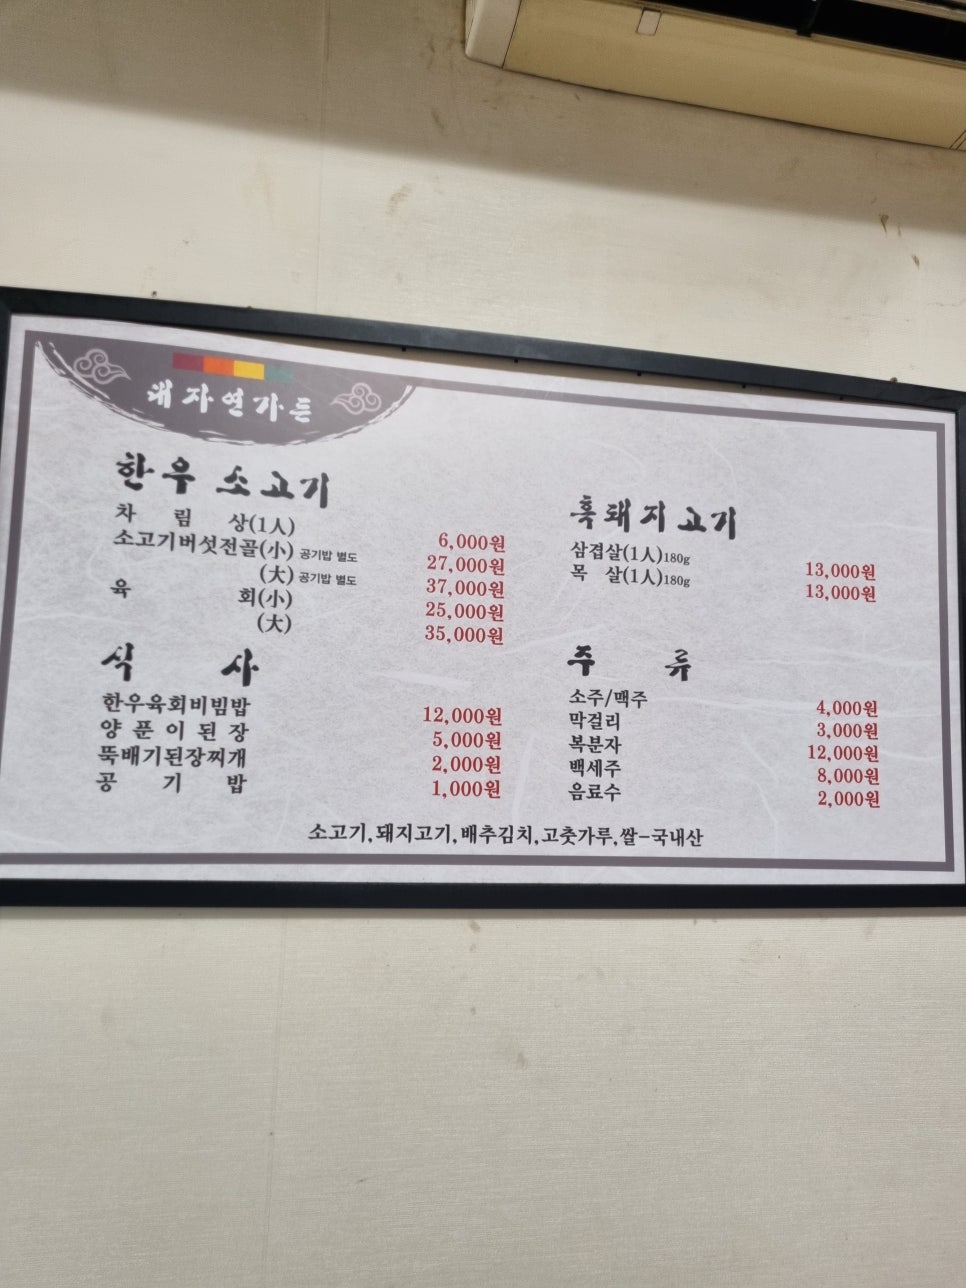 대자연가든
한우 소고기
차림상(1人) 6,000원
소고기버섯전골(小) 공기밥 별도 27,000원
(大) 공기밥 별도 37,000원
육 회(小) 25,000원
(大) 35,000원
식 사
한우육회비빔밥 12,000원
양푼이된장 5,000원
뚝배기된장찌개 2,000원
공기밥 1,000원
흑돼지고기
삼겹살(1人)180g 13,000원
목 살(1人)180g 13,000원
주 류
소주/맥주 4,000원
막걸리 3,000원
복분자 12,000원
백세주 8,000원
음료수 2,000원
소고기,돼지고기,배추김치,고춧가루,쌀-국내산